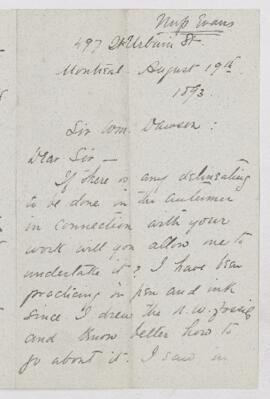 Miss Evans
497 St Urbain St
Montreal August 19th
1893.
Sir Wm. Dawson:
Dear Sir –
If there is any delineating
to be done in the autumn
in connection with your
work will you allow me to
undertake it? I have been
practicing in pen and ink
since I drew the N.W. fossils
and know better how to
go about it. I saw in